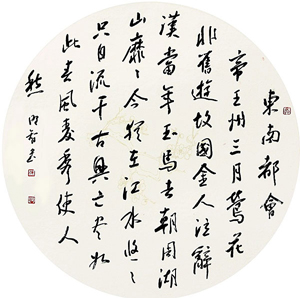 東南都會
帝王州三月鶯花
非舊遊故國金人泣辭
漢當年玉馬去朝周湖
山靡々今猶在江水悠々
只自流千古興亡盡如
此春風麥秀使人
愁